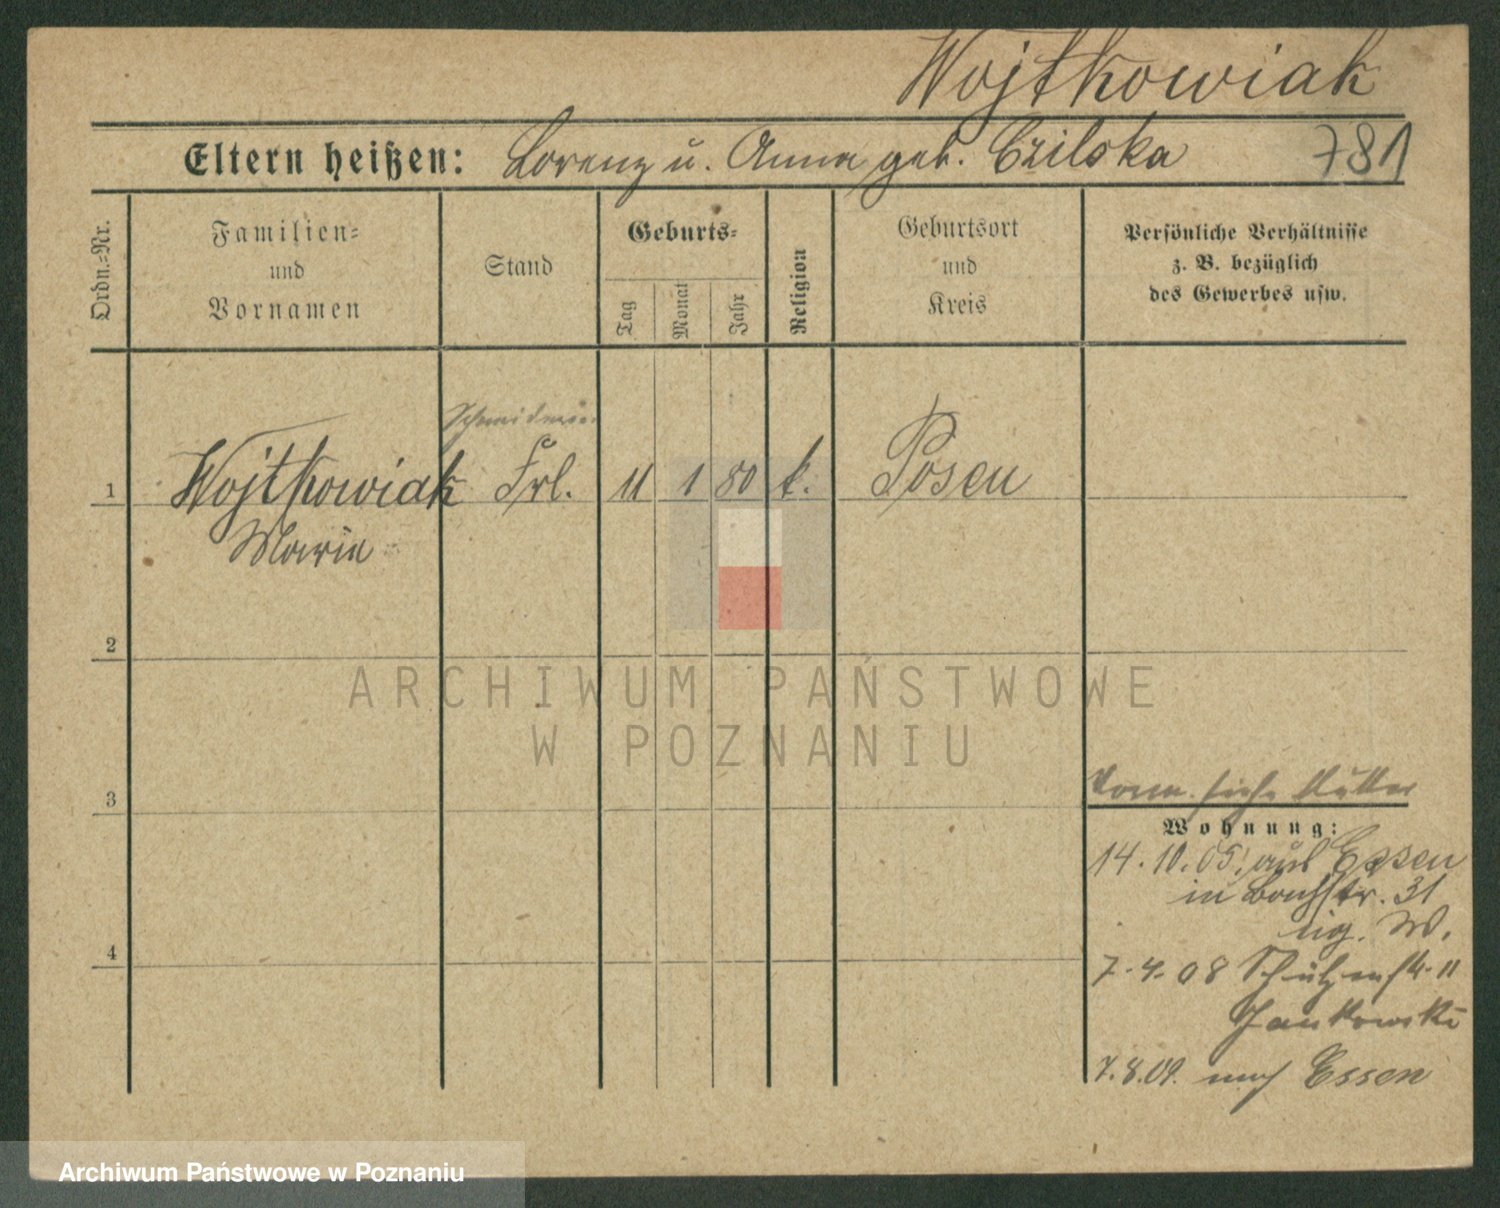 Wojtkowiak
Eltern heißen: Lorenz u. Anna geb. Czilska 781
Ordn.-Nr.
Familien-
und
Vornamen
Stand
Geburts-
Tag
Monat
Jahr
Religion
Geburtsort
und
Kreis
Persönliche Verhältnisse
z. B. bezüglich
des Gewerbes usw.
Schneiderin
1 Wojtkowiak Frl. 11 1 80 k. Posen
Marie
2
3
4
siehe Mutter
Wohnung:
14.10.05, aus Essen
in 31
eig. W.
7.4.08 Schützenstr. 11
Jankowski
7.8.09. nach Essen
ARCHIWUM PAŃSTWOWE
W POZNANIU
Archiwum Państwowe w Poznaniu